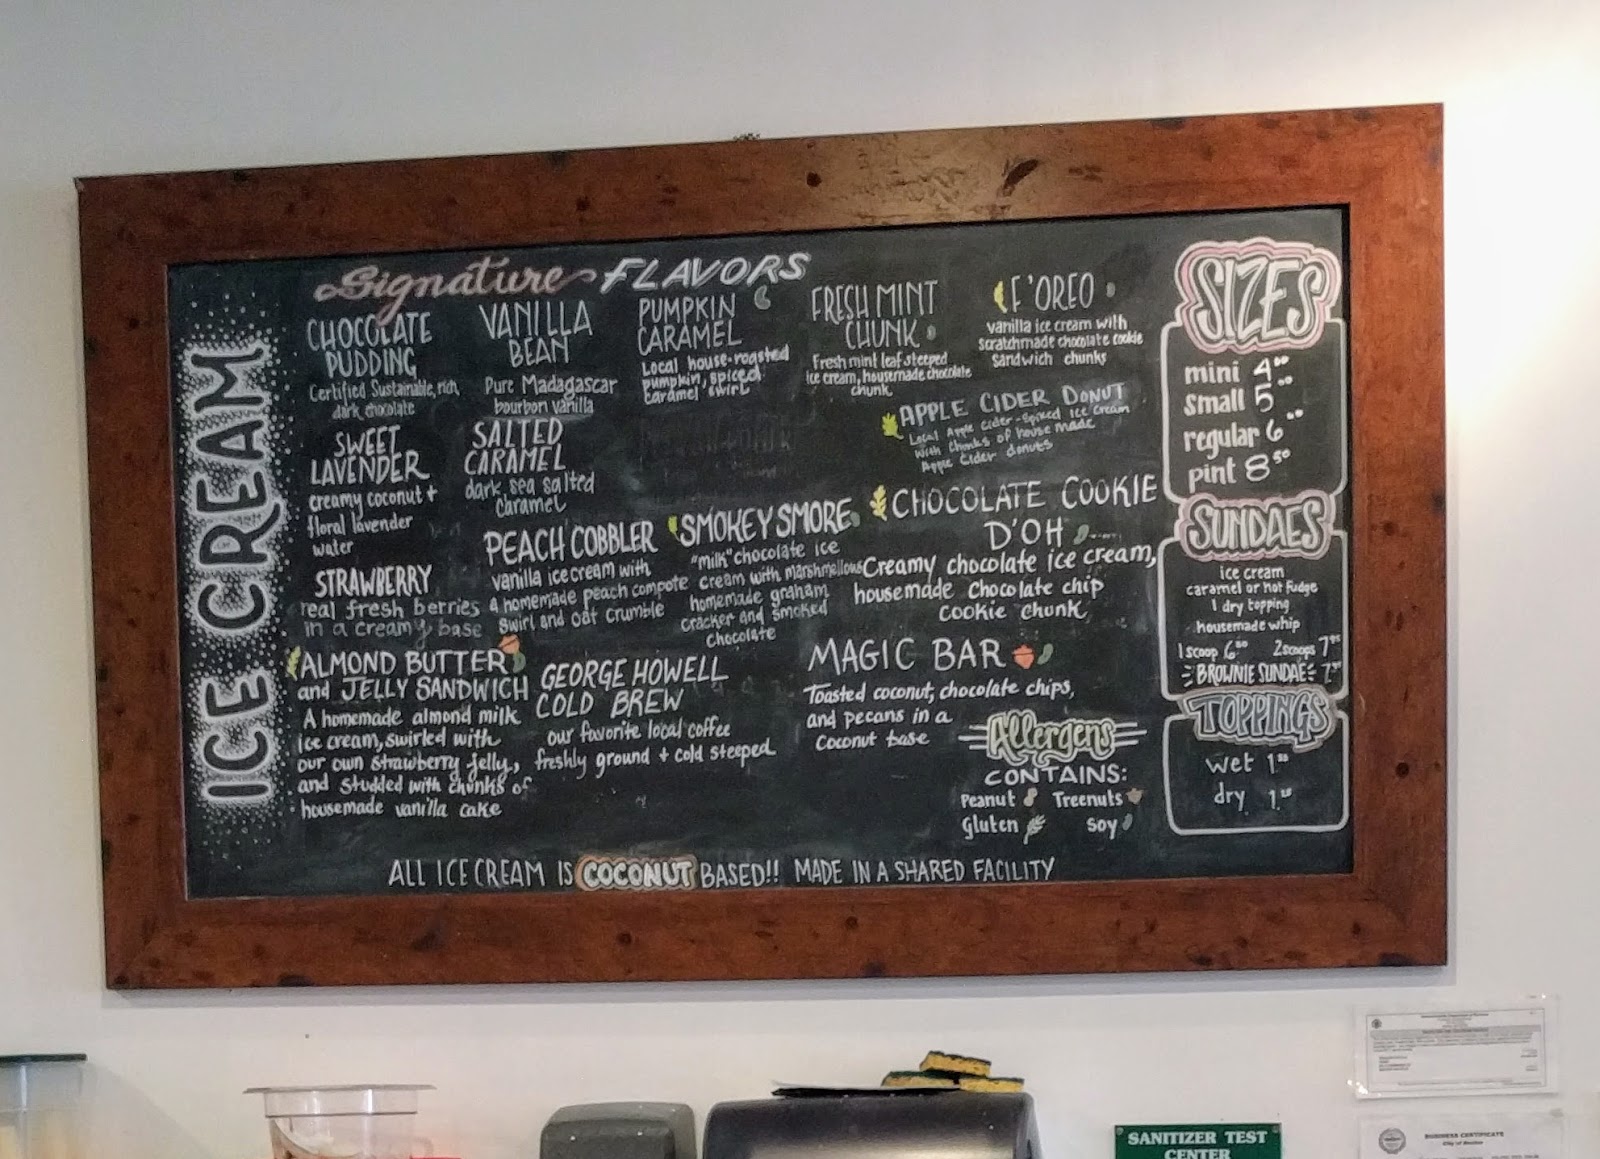 ICE CREAM
Signature FLAVORS
CHOCOLATE
PUDDING
Certified Sustainable, rich,
dark chocolate
VANILLA
BEAN
Pure Madagascar
bourbon vanilla
PUMPKIN
CARAMEL
Local house-roasted
pumpkin, spiced
caramel swirl
FRESH MINT
CHUNK
Fresh mint leaf steeped
ice cream, housemade chocolate
chunk
F'OREO
vanilla ice cream with
scratchmade chocolate cookie
sandwich chunks
SWEET
LAVENDER
creamy coconut +
floral lavender
water
SALTED
CARAMEL
dark, sea salted
caramel
APPLE CIDER DONUT
Local Apple cider-spiced Ice Cream
with chunks of house made
Apple Cider donuts
STRAWBERRY
real fresh berries
in a creamy base
PEACH COBBLER
vanilla ice cream with
a homemade peach compote
swirl and oat crumble
SMOKEY SMORE
"milk" chocolate ice
cream with marshmallows
homemade graham
cracker and smoked
chocolate
CHOCOLATE COOKIE
D'OH
Creamy chocolate ice cream,
housemade chocolate chip
cookie chunk
ALMOND BUTTER
and JELLY SANDWICH
A homemade almond milk
ice cream, swirled with
our own strawberry jelly,
and studded with chunks of
housemade vanilla cake
GEORGE HOWELL
COLD BREW
our favorite local coffee
freshly ground + cold steeped
MAGIC BAR
Toasted coconut, chocolate chips,
and pecans in a
coconut base
Allergens
CONTAINS:
Peanut Treenuts
Gluten Soy
ALL ICE CREAM IS COCONUT BASED!! MADE IN A SHARED FACILITY
SIZES
mini 4.00
small 5.00
regular 6.00
pint 8.50
SUNDAES
ice cream
caramel or hot fudge
1 dry topping
housemade whip
1 scoop 6.50 2 scoops 7.95
BROWNIE SUNDAE
TOPPINGS
wet 1.
dry 1.
SANITIZER TEST
CENTER
BUSINESS CERTIFICATE
City of Boston